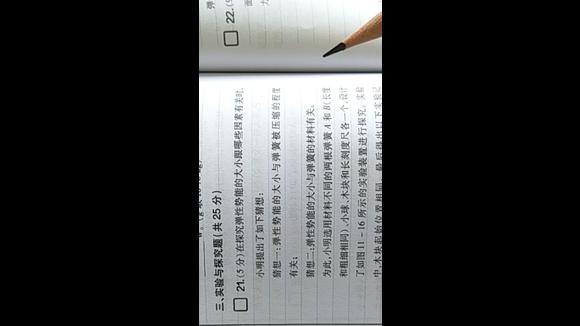 22.(
三、实验与探究题(共25分)
21.(5分)在探究弹性势能的大小跟哪些因素有关时,
小明提出了如下猜想:
猜想一:弹性势能的大小与弹簧被压缩的程度
有关;
猜想二:弹性势能的大小与弹簧的材料有关。
为此,小明选用材料不同的两根弹簧A和B(长度
和粗细相同)、小球、木块和长刻度尺各一个,设计
了如图11-16所示的实验装置进行探究。实验
中,木块起始位置相同,最后得出以下实验记